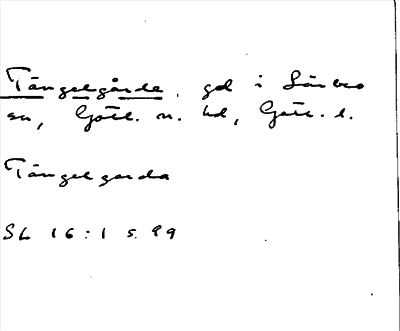 Tängelgårde, gd i Lärbro
sn, Gotl. n. hd, Gotl. l.
Tängelgarda
SL 16:1 s. 99